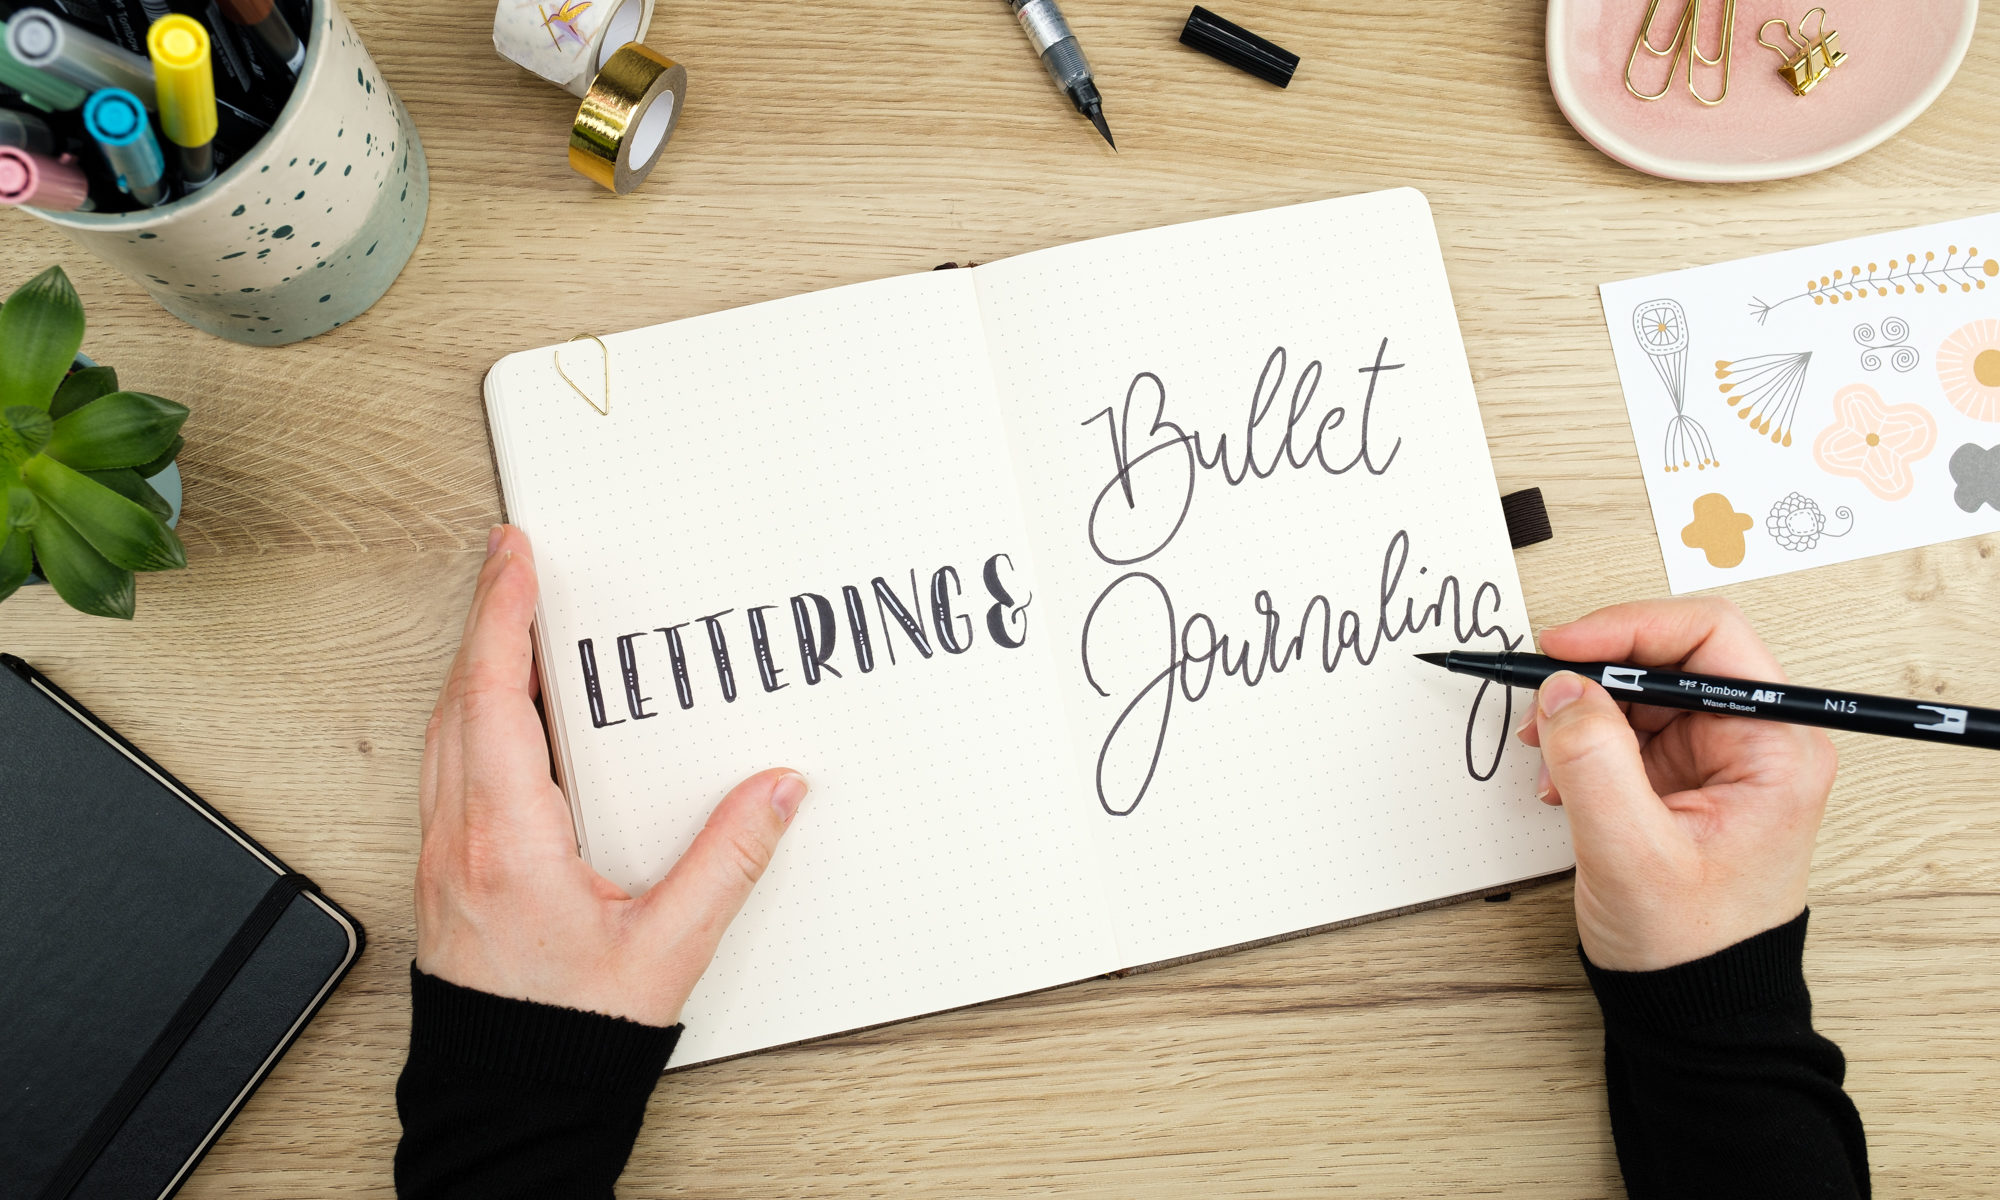 LETTERING &
Bullet
Journaling
Tombow ABT
Water-Based
N15
Tombow